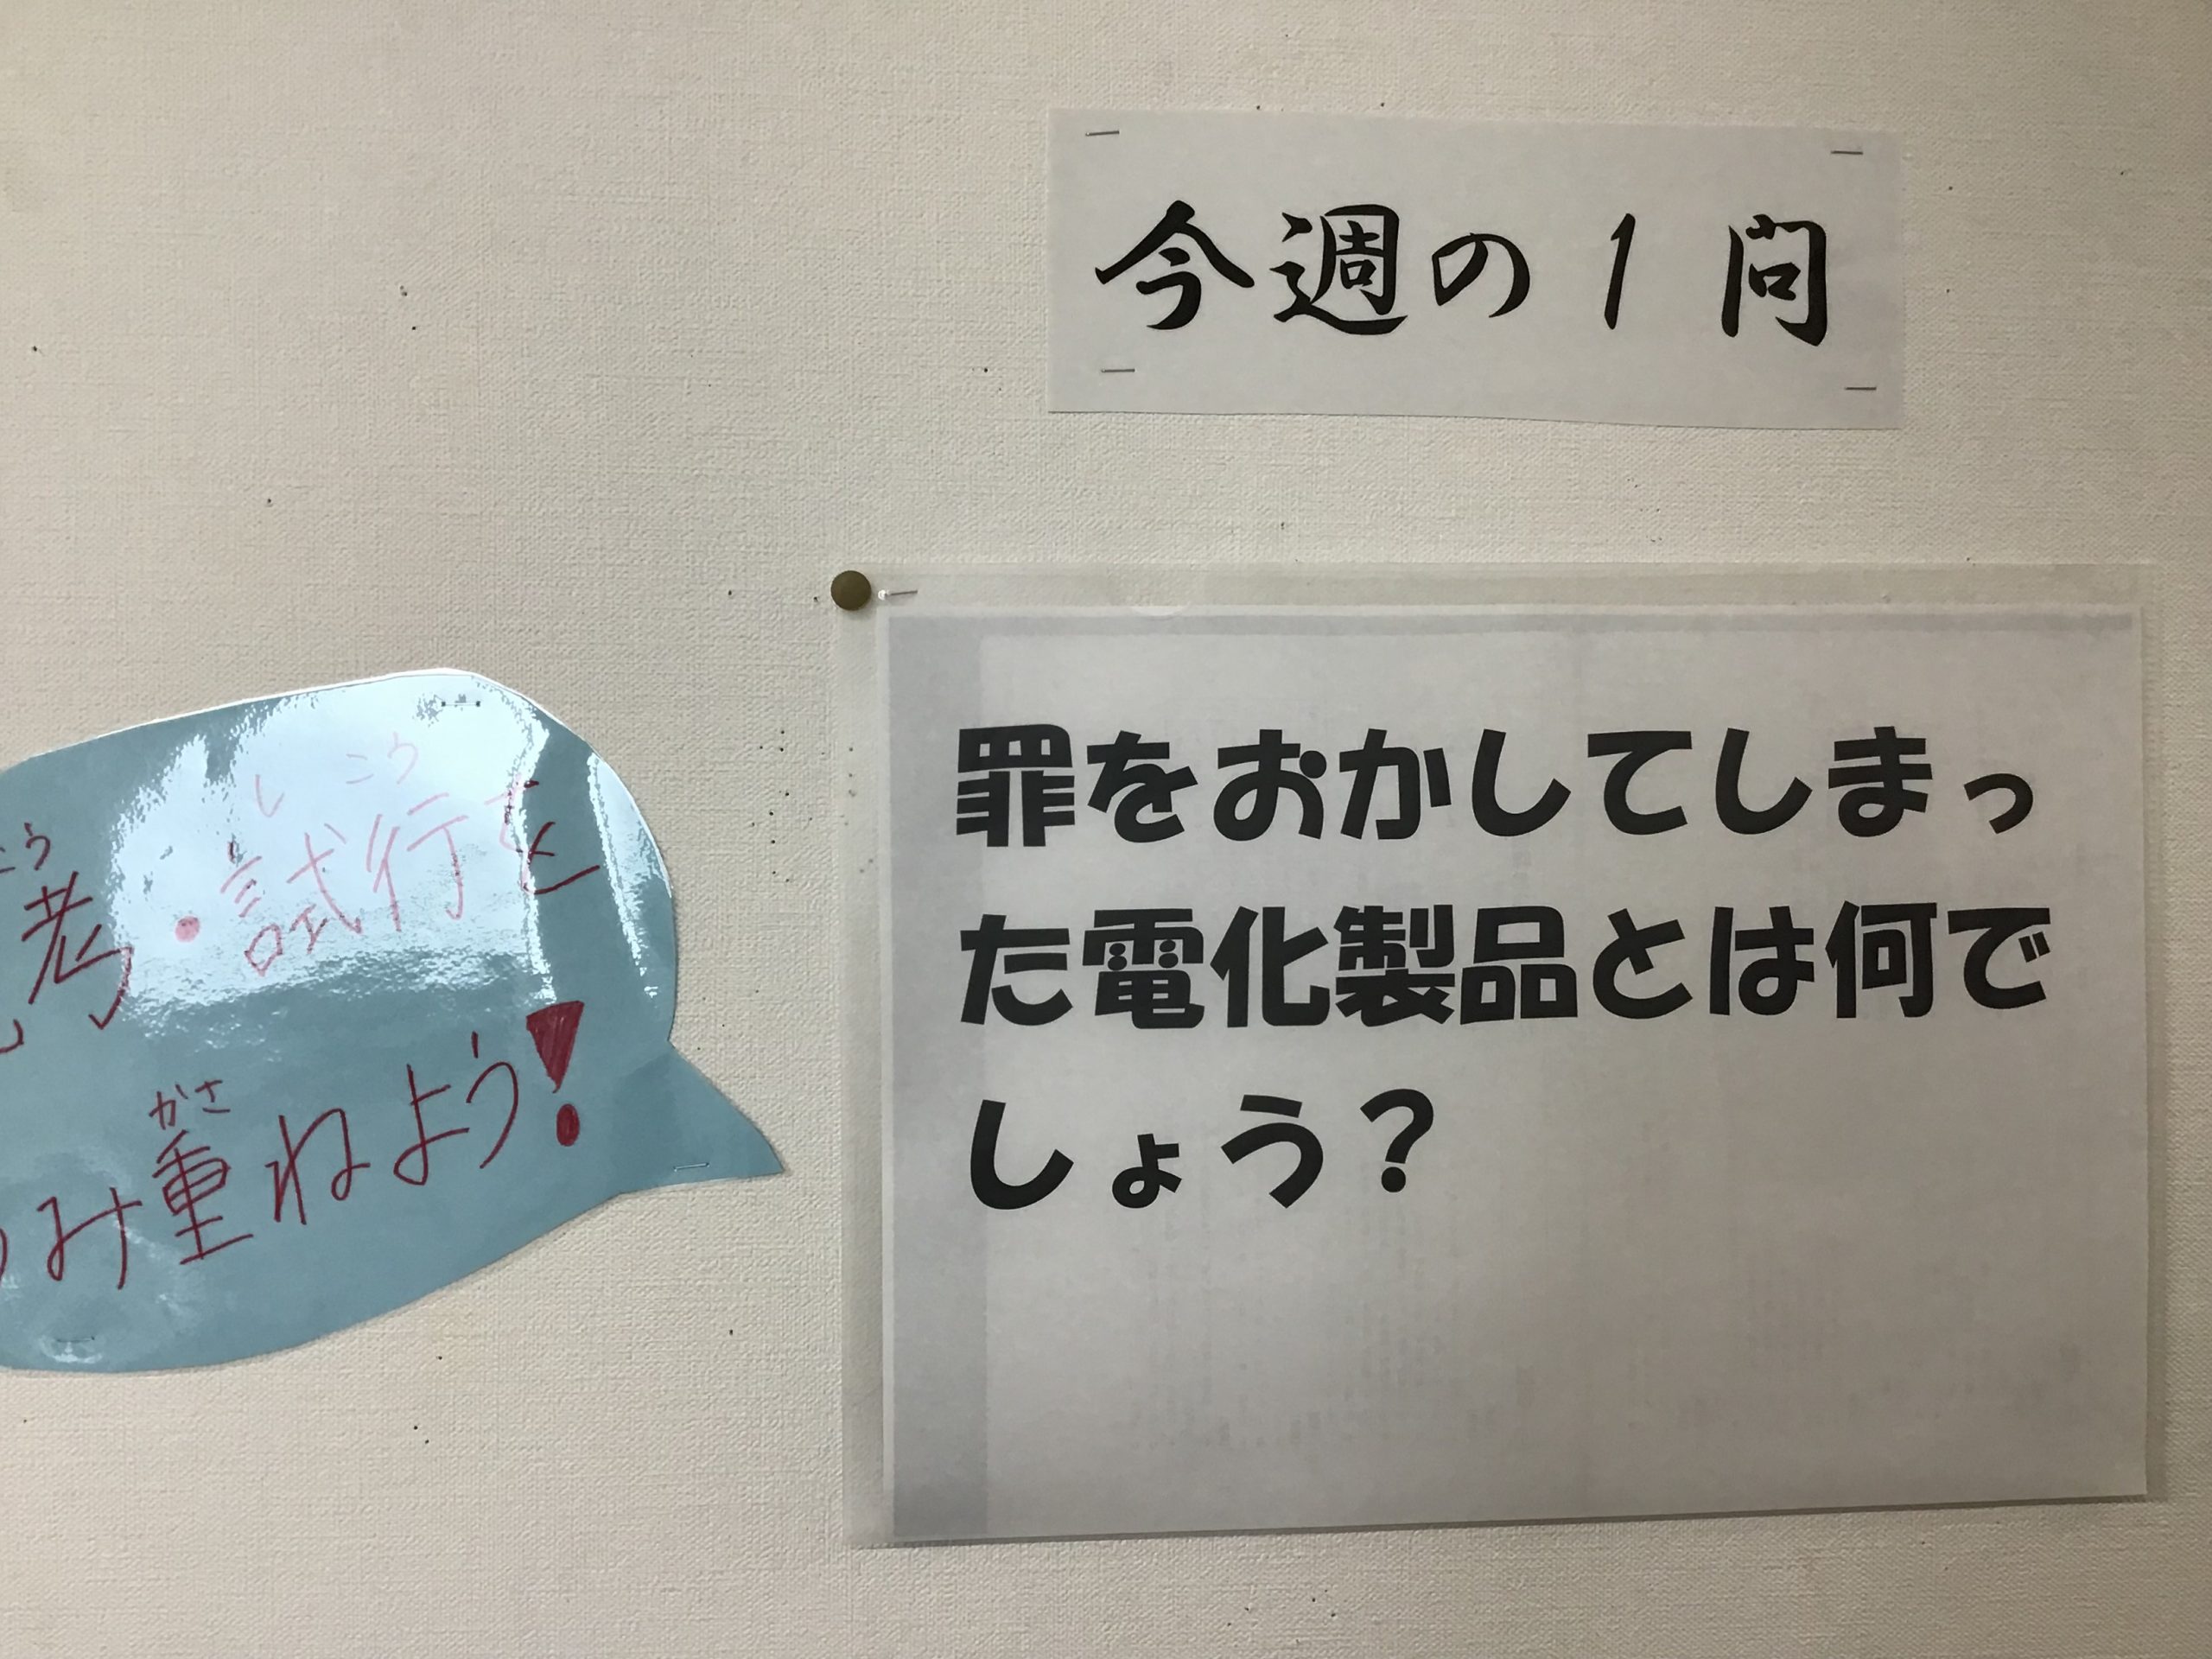 今週の1問
罪をおかしてしまっ
た電化製品とは何で
しょう?
こう
しこう
考・試行を
かさ
み重ねよう!